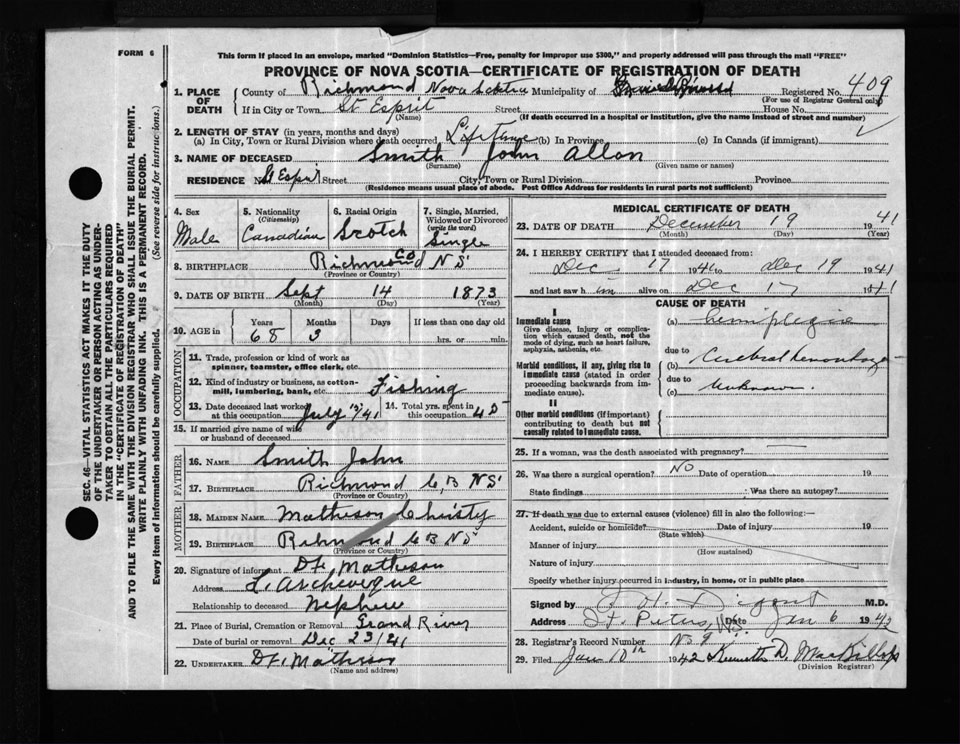 FORM 6
This form if placed in an envelope, marked "Dominion Statistics—Free, penalty for improper use $300," and properly addressed will pass through the mail "FREE"
PROVINCE OF NOVA SCOTIA—CERTIFICATE OF REGISTRATION OF DEATH
1. PLACE OF DEATH
County of Richmond Nova Scotia Municipality of Registered No. 409
(For use of Registrar General only)
If in City or Town St Esprit Street House No.
(Name) (If death occurred in a hospital or institution, give the name instead of street and number)
2. LENGTH OF STAY (in years, months and days)
(a) In City, Town or Rural Division where death occurred Lifetime (b) In Province (c) In Canada (if immigrant)
3. NAME OF DECEASED Smith, John Allan
(Surname) (Given name or names)
RESIDENCE St Esprit Street City, Town or Rural Division Province
(Residence means usual place of abode. Post Office Address for residents in rural parts not sufficient)
4. Sex
Male
5. Nationality (Citizenship)
Canadian
6. Racial Origin
Scotch
7. Single, Married, Widowed or Divorced (write the word)
Single
8. BIRTHPLACE Richmond Co N S
(Province or Country)
9. DATE OF BIRTH Sept 14 1873
(Month) (Day) (Year)
10. AGE in Years Months Days If less than one day old
68 3 hrs. or min.
OCCUPATION
11. Trade, profession or kind of work as spinner, teamster, office clerk, etc.
12. Kind of industry or business, as cotton-mill, lumbering, bank, etc. Fishing
13. Date deceased last worked at this occupation July 1941
14. Total yrs. spent in this occupation 45
15. If married give name of wife or husband of deceased
FATHER
16. NAME Smith John
17. BIRTHPLACE Richmond C,B N S
(Province or Country)
MOTHER
18. MAIDEN NAME Matheson Christy
19. BIRTHPLACE Richmond C B N S
(Province or Country)
20. Signature of informant Matheson
Address L'Archeveque
Relationship to deceased Nephew
21. Place of Burial, Cremation or Removal Grand River
Date of burial or removal Dec 23/41
22. UNDERTAKER Matheson
(Name and address)
MEDICAL CERTIFICATE OF DEATH
23. DATE OF DEATH December 19 1941
(Month) (Day) (Year)
24. I HEREBY CERTIFY that I attended deceased from:
Dec 17 19 to Dec 19 1941
and last saw h im alive on Dec 17 1941
CAUSE OF DEATH
I
Immediate cause
Give disease, injury or complication which caused death, not the mode of dying, such as heart failure, asphyxia, asthenia, etc.
(a) hemiplegia
due to
Morbid conditions, if any, giving rise to immediate cause (stated in order proceeding backwards from immediate cause).
(b) Cerebral hemorrhage
due to
(c) Unknown.
II
Other morbid conditions (if important) contributing to death but not causally related to immediate cause.
25. If a woman, was the death associated with pregnancy?
26. Was there a surgical operation? No Date of operation 19
State findings Was there an autopsy?
27. If death was due to external causes (violence) fill in also the following:—
Accident, suicide or homicide? Date of injury 19
(State which)
Manner of injury
(How sustained)
Nature of injury
Specify whether injury occurred in industry, in home, or in public place
Signed by M.D.
Address St. Peters, N.S. Date Jan 6 1942
28. Registrar's Record Number No 9
29. Filed Jan 10th 1942 Kenneth D. MacKillop
(Division Registrar)
SEC. 46—VITAL STATISTICS ACT MAKES IT THE DUTY
OF THE UNDERTAKER OR PERSON ACTING AS UNDER-
TAKER TO OBTAIN ALL THE PARTICULARS REQUIRED
IN THE "CERTIFICATE OF REGISTRATION OF DEATH"
AND TO FILE THE SAME WITH THE DIVISION REGISTRAR WHO SHALL ISSUE THE BURIAL PERMIT.
WRITE PLAINLY WITH UNFADING INK. THIS IS A PERMANENT RECORD.
Every item of information should be carefully supplied. (See reverse side for instructions.)